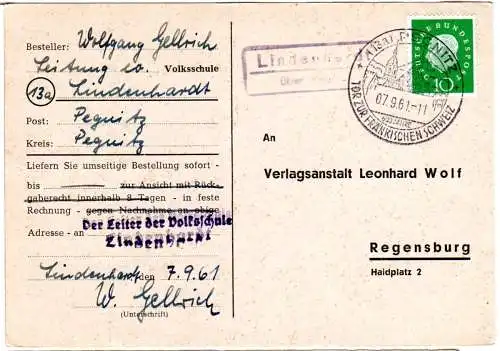 Besteller: Wolfgang Gellrich
Leitung ev. Volksschule
(13a) Lindenhardt
Post: Pegnitz
Kreis: Pegnitz
Liefern Sie umseitige Bestellung sofort -
bis zur Ansicht mit Rück-
gaberecht innerhalb 8 Tagen - in feste
Rechnung - gegen Nachnahme an obige
Adresse - an
Der Leiter der Volksschule
Lindenhardt
Lindenhardt, den 7.9.61
W. Gellrich
(Unterschrift)
Lindenh
über
PEGNITZ
07.9.61-11
TOR ZUR FRÄNKISCHEN SCHWEIZ
DEUTSCHE BUNDESPOST
10
An
Verlagsanstalt Leonhard Wolf
Regensburg
Haidplatz 2